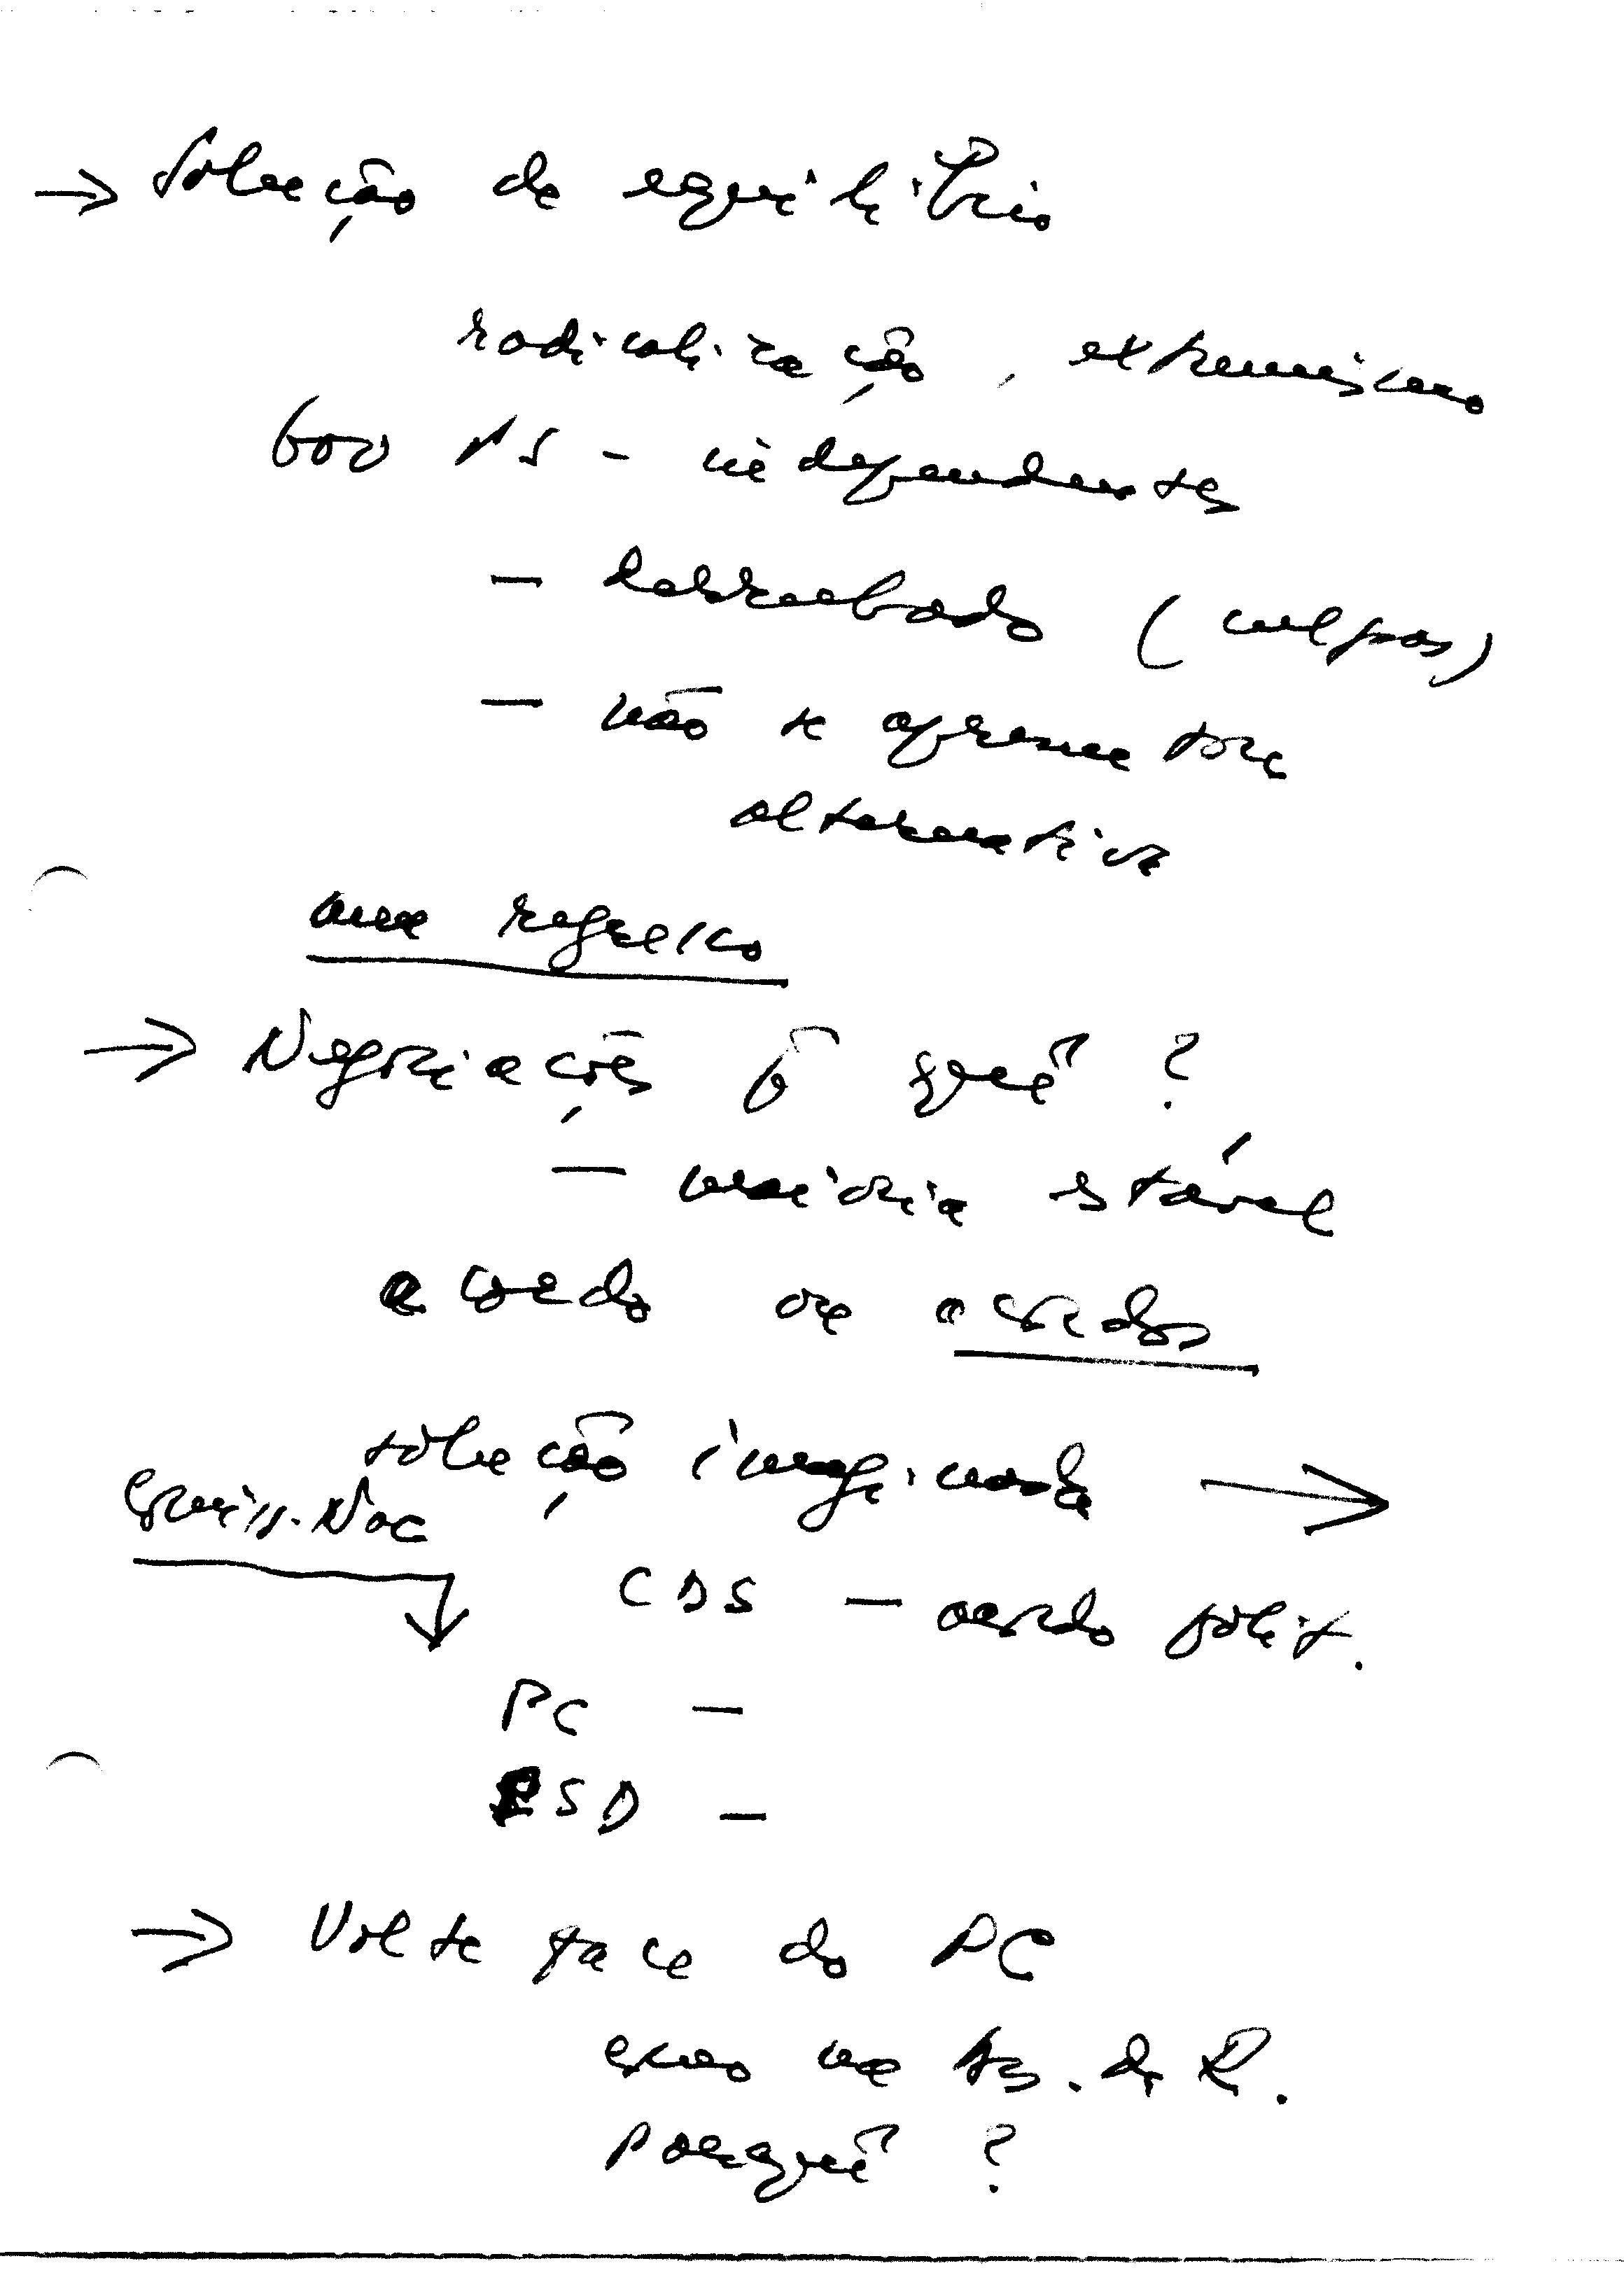 → Solução de equilíbrio
radicalização, extremismo
Gov PS - independentes
- derrubado (culpas)
- não se apresentou
alternativa
um regresso
→ Negociações p quê?
- maioria estável
acordo ou acordos
solução imaginada →
Comiss. Nac
CDS - acordo polit.
PC -
PSD -
→ Volte face do PC
como na As. da R.
Porquê?